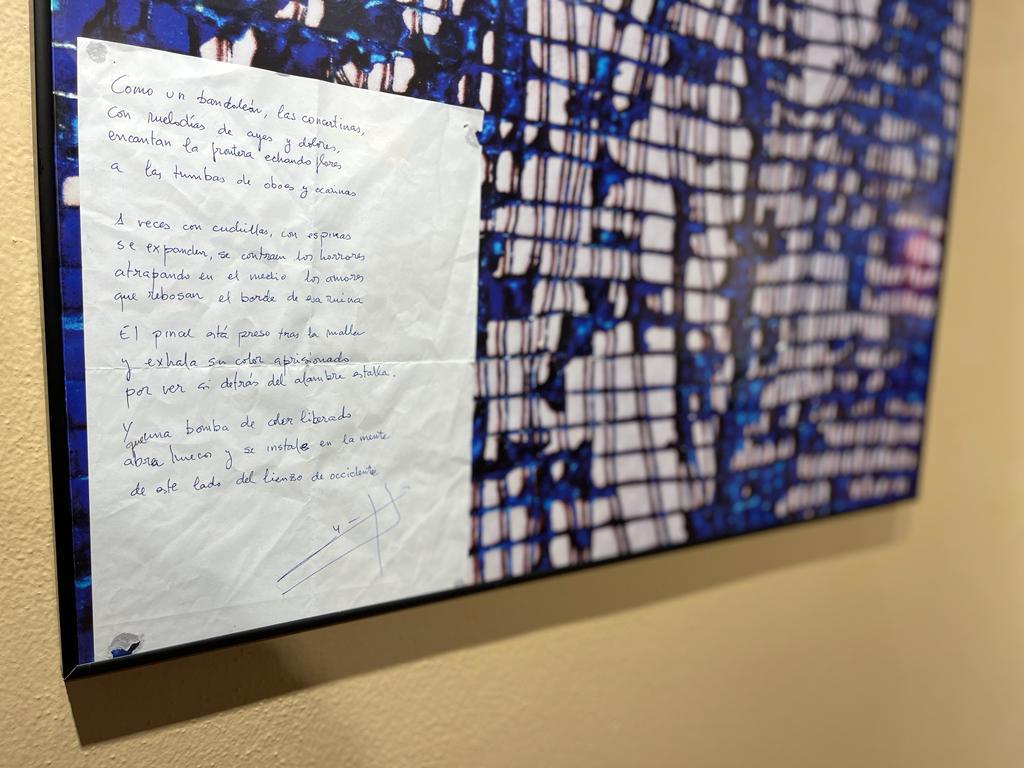 Como un bandoleón, las concertinas,
con melodías de ayes y dolores,
encantan la frontera echando flores
a las tumbas de oboes y ocarinas
A veces con cuchillas, con espinas
se expanden, se contraen los horrores
atrapando en el medio los amores
que rebosan el borde de esa ruina
El pincel está preso tras la malla
y exhala su color aprisionado
por ver si detrás del alambre estalla.
Y que una bomba de color liberado
abra hueco y se instale en la mente
de este lado del lienzo de occidente